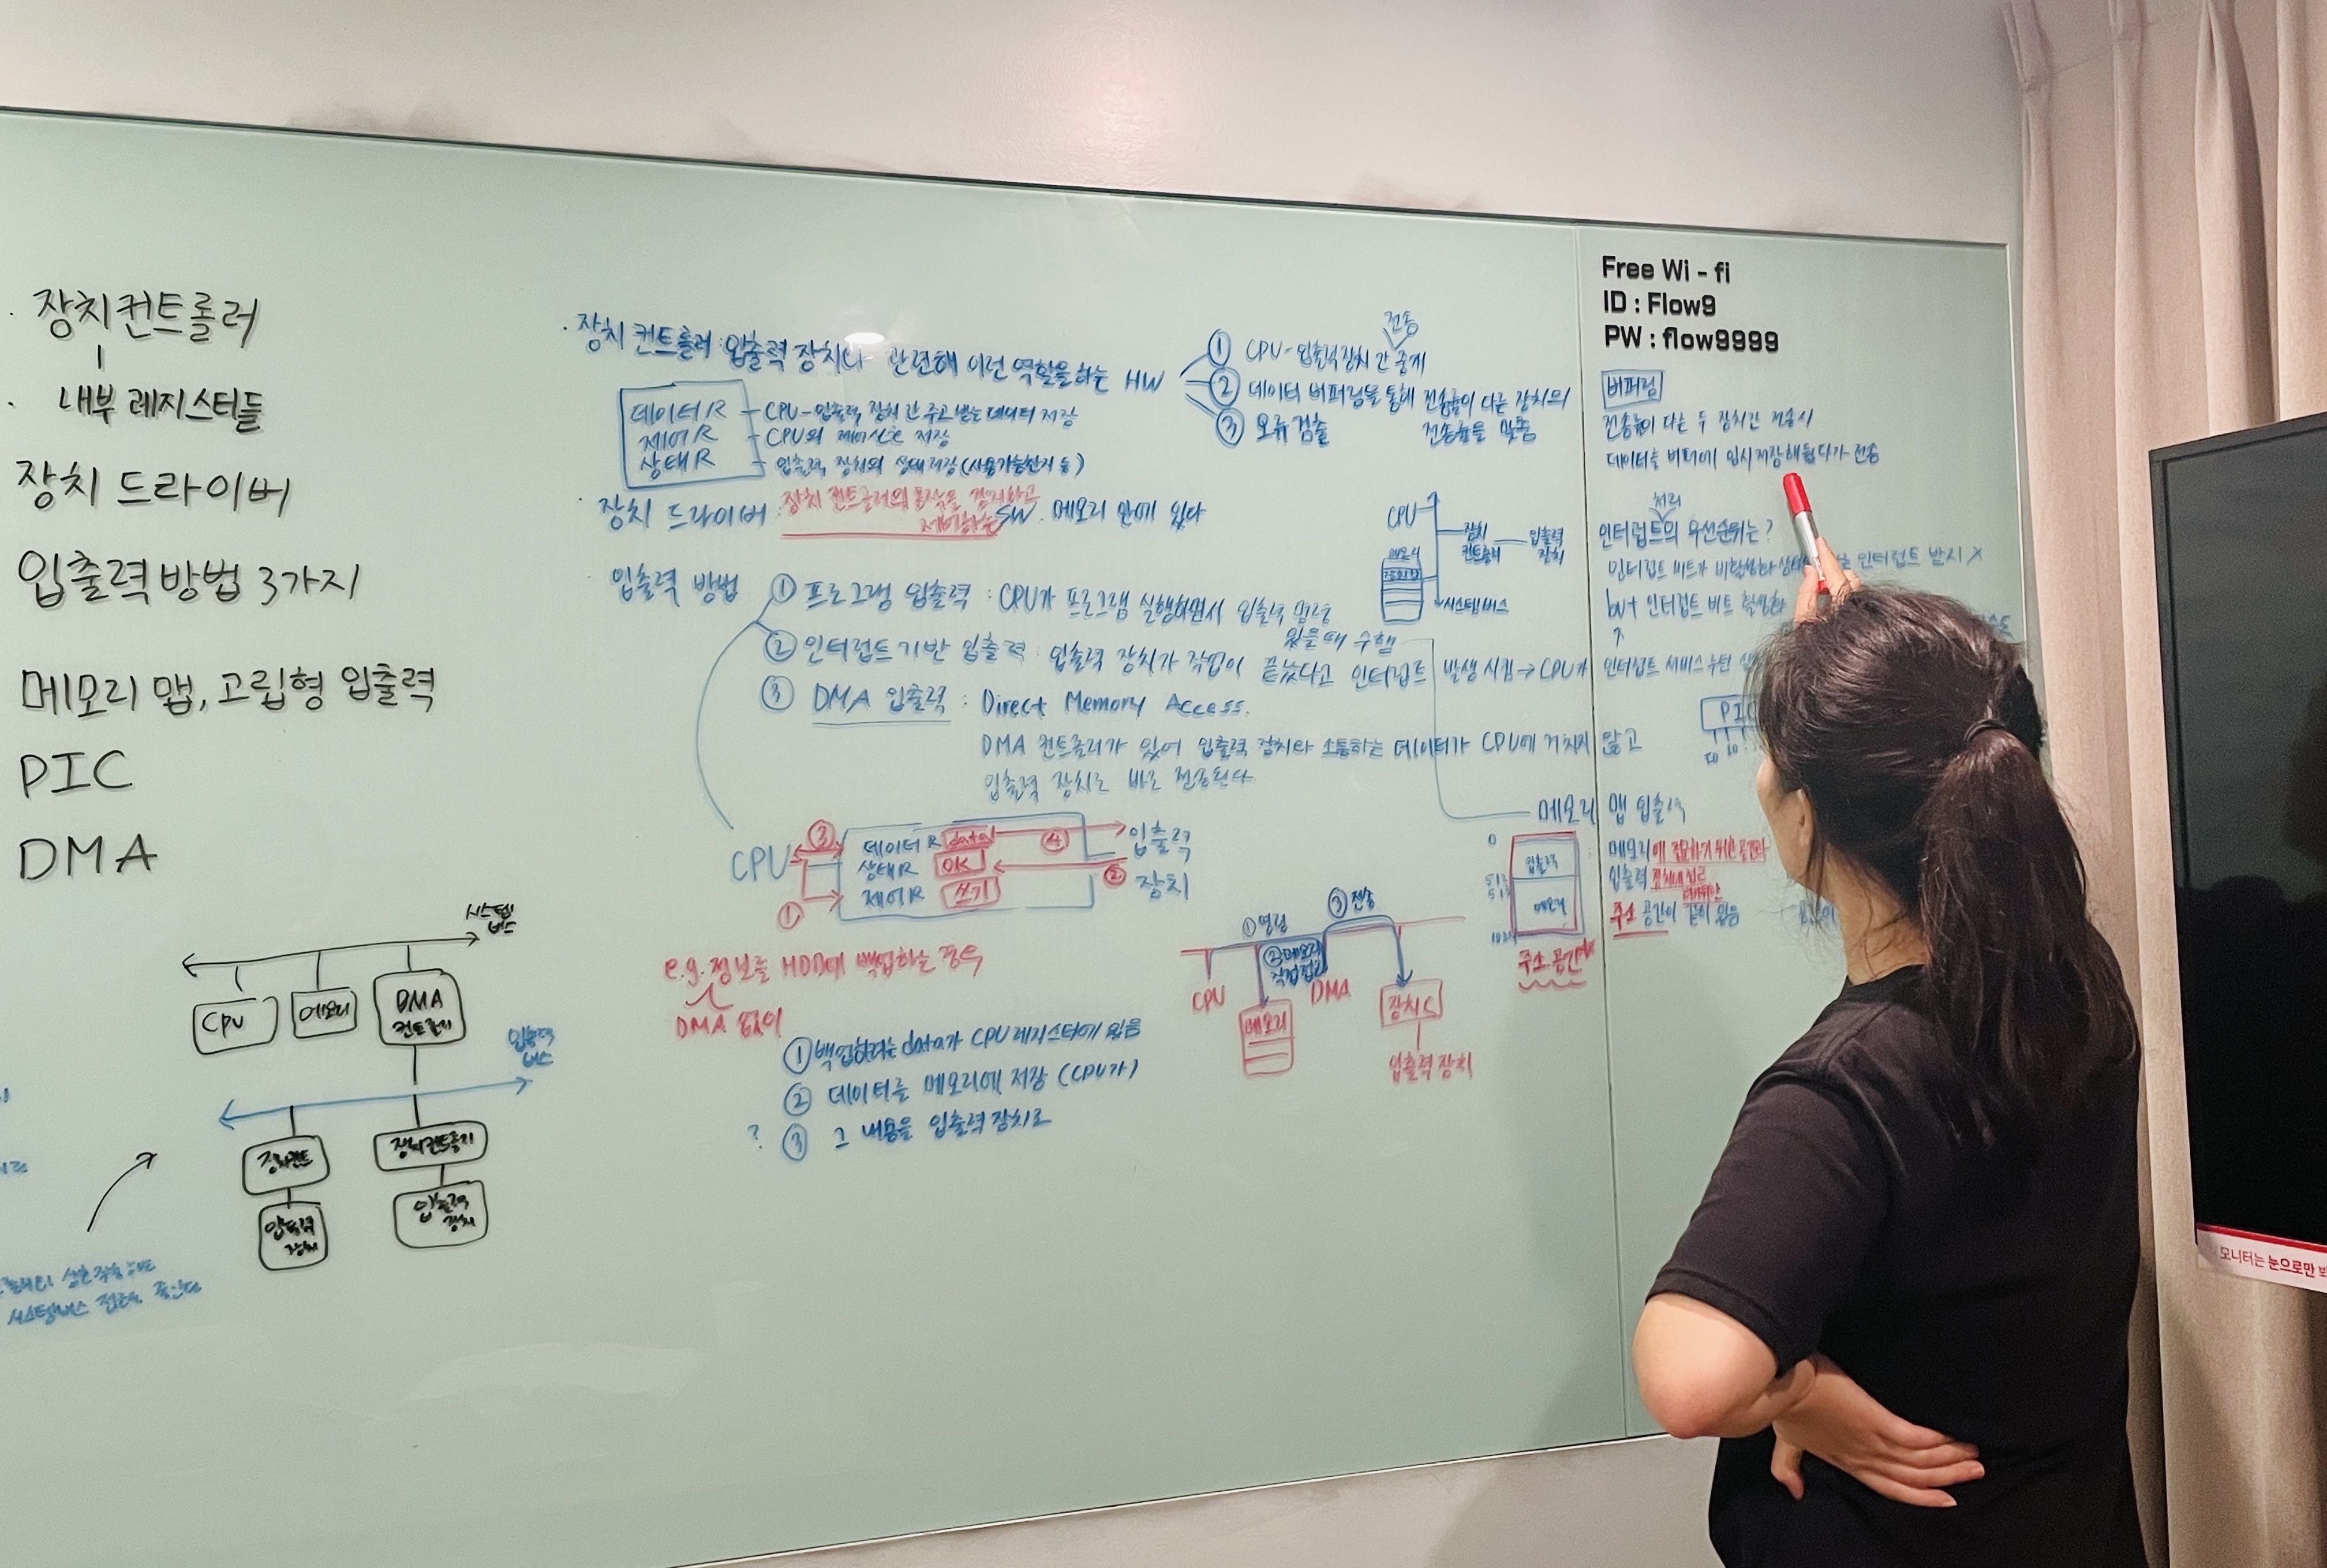 · 장치컨트롤러
· 내부 레지스터들
장치 드라이버
입출력 방법 3가지
메모리 맵, 고립형 입출력
PIC
DMA
시스템 버스
CPU
메모리
DMA 컨트롤러
입출력 버스
장치컨트
장치컨트롤러
입출력 장치
입출력 장치
시스템버스
· 장치 컨트롤러 : 입출력 장치나 관련해 이런 역할을 하는 HW
전송
① CPU-입출력장치 간 중계
② 데이터 버퍼링을 통해 전송률이 다른 장치의
전송률을 맞춤
③ 오류 검출
데이터R - CPU-입출력 장치 간 주고 받는 데이터 저장
제어R - CPU의 제어신호 저장
상태R - 입출력 장치의 상태 저장 (사용가능한지 등)
· 장치 드라이버 : 장치 컨트롤러의 동작을 감지하고
제어하는 SW. 메모리 안에 있다
CPU
장치 컨트롤러
입출력 장치
메모리
시스템버스
· 입출력 방법
① 프로그램 입출력 : CPU가 프로그램 실행하면서 입출력 명령
있을 때 수행
② 인터럽트기반 입출력 : 입출력 장치가 작업이 끝났다고 인터럽트 발생시킴 → CPU가 인터럽트 서비스 루틴
③ DMA 입출력 : Direct Memory Access.
DMA 컨트롤러가 있어 입출력 장치와 소통하는 데이터가 CPU에 거치지 않고
입출력 장치로 바로 전송된다
CPU
③
데이터R data
④
입출력
상태R OK
②
장치
제어R 쓰기
①
e.g. 정보를 HDD에 백업하는 경우
DMA 없이
① 백업하려는 data가 CPU 레지스터에 있음
② 데이터를 메모리에 저장 (CPU가)
? ③ 그 내용을 입출력 장치로
① 명령
② 메모리 직접접근
③ 전송
CPU
메모리
DMA
장치C
입출력 장치
Free Wi - fi
ID : Flow9
PW : flow9999
버퍼링
전송률이 다른 두 장치간 전송시
데이터를 버퍼에 임시저장해뒀다가 전송
처리
인터럽트의 우선순위는?
인터럽트 비트가 비활성화 인터럽트 받지 X
but 인터럽트 비트 활성화
PIC
메모리 맵 입출력
0
입출력
메모리
주소 공간
메모리에 접근하기 위한 공간과
입출력 장치에 접근
주소 공간이 같이 있음
모니터는 눈으로만